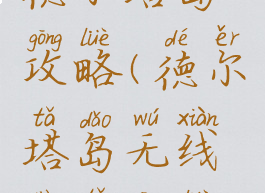 gōng lüè dé ěr
攻略(德尔
tǎ dǎo wú xiàn
塔岛无线